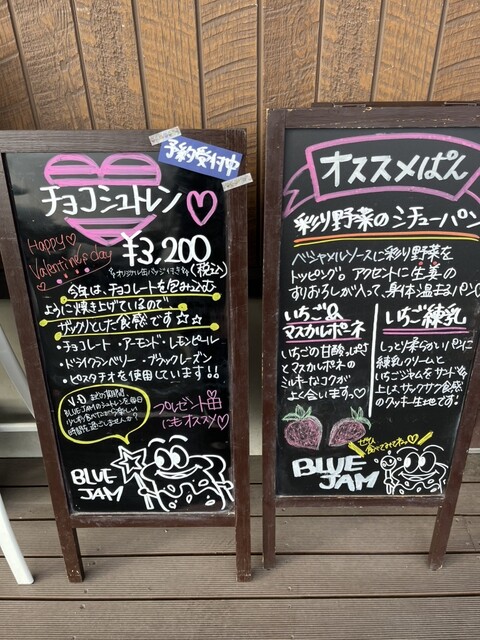 予約受付中
チョコシュトレン
Happy♡
Valentine's day
¥3,200
(税込)
今年は、チョコレートを包み込む
ように焼き上げているので
ザックリとした食感です☆☆
・チョコレート ・アーモンド・レモンピール
・ドライクランベリー ・ブラックレーズン
・ピスタチオを使用しています!!
V.Dまでの期間
BLUE JAMのシュトレンを毎日
時間を過ごしませんか
プレゼント用
にもオススメ♡
BLUE
JAM
オススメぱん
彩り野菜のシチューパン
ベシャメルソースに彩り野菜を
トッピング。アクセントに生姜の
すりおろしが入って、身体温まるパン
いちご&
マスカルポーネ
いちごの甘酸っぱさ
とマスカルポーネの
ミルキーなコクが
よく合います。♡
いちご練乳
しっとり柔らかいパンに
練乳クリームと
いちごジャムをサンド
上は、サクサク食感
のクッキー生地です!
ぜひ
食べてみてね♡
BLUE
JAM